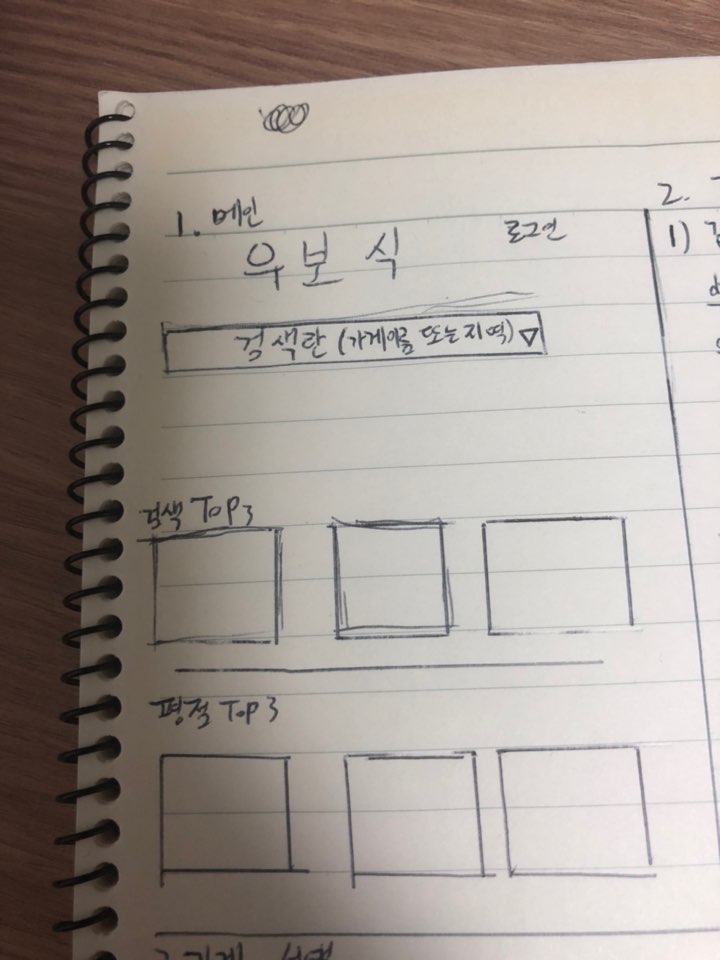 1. 메인
우보식
로그인
검색란 (가게이름 또는 지역) ▽
검색 Top3
평점 Top3
2.
1)